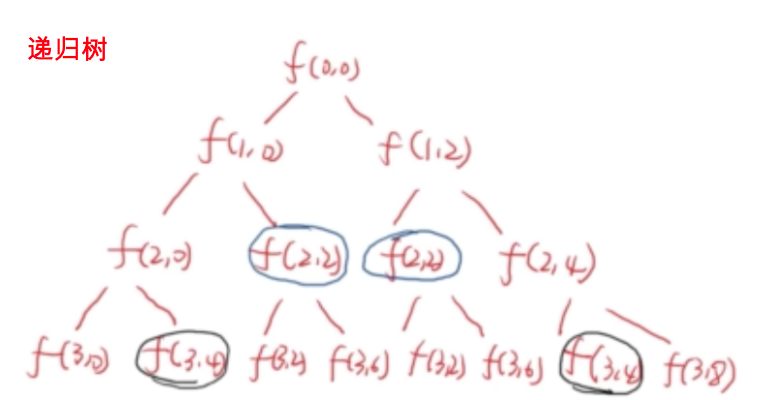 递归树
f(0,0)
f(1,0) f(1,2)
f(2,0) f(2,2) f(2,2) f(2,4)
f(3,0) f(3,4) f(3,2) f(3,6) f(3,2) f(3,6) f(3,4) f(3,8)